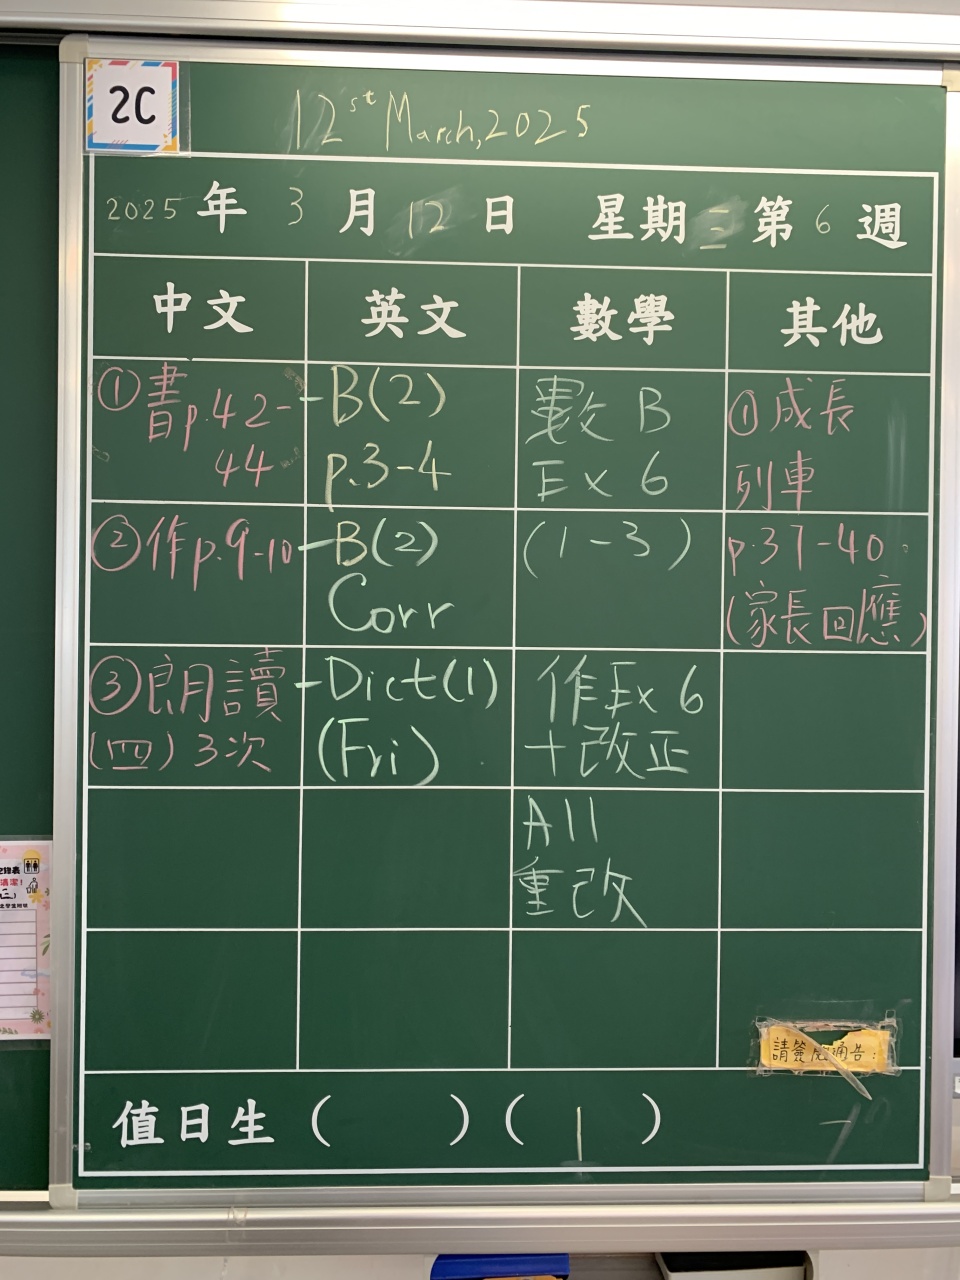 2C
12st March, 2025
2025 年 3 月 12 日 星期三 第 6 週
中文 英文 數學 其他
①書p.42-
44
②作p.9-10
③朗讀
(四)3次
-B(2)
p.3-4
-B(2)
Corr
-Dict(1)
(Fri)
數B
Ex 6
(1-3)
作Ex 6
+改正
All
重改
①成長
列車
p.37-40
(家長回應)
請簽 通告:
值日生 ( ) ( 1 )